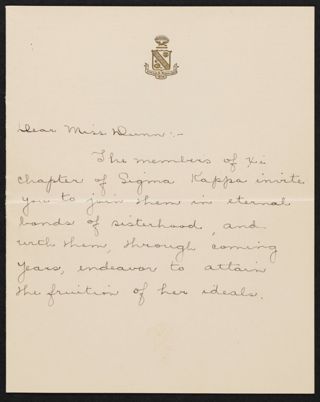 Dear Miss Dunn:-
The members of Xi
chapter of Sigma Kappa invite
you to join them in eternal
bonds of sisterhood, and
with them, through coming
years, endeavor to attain
the fruition of her ideals.